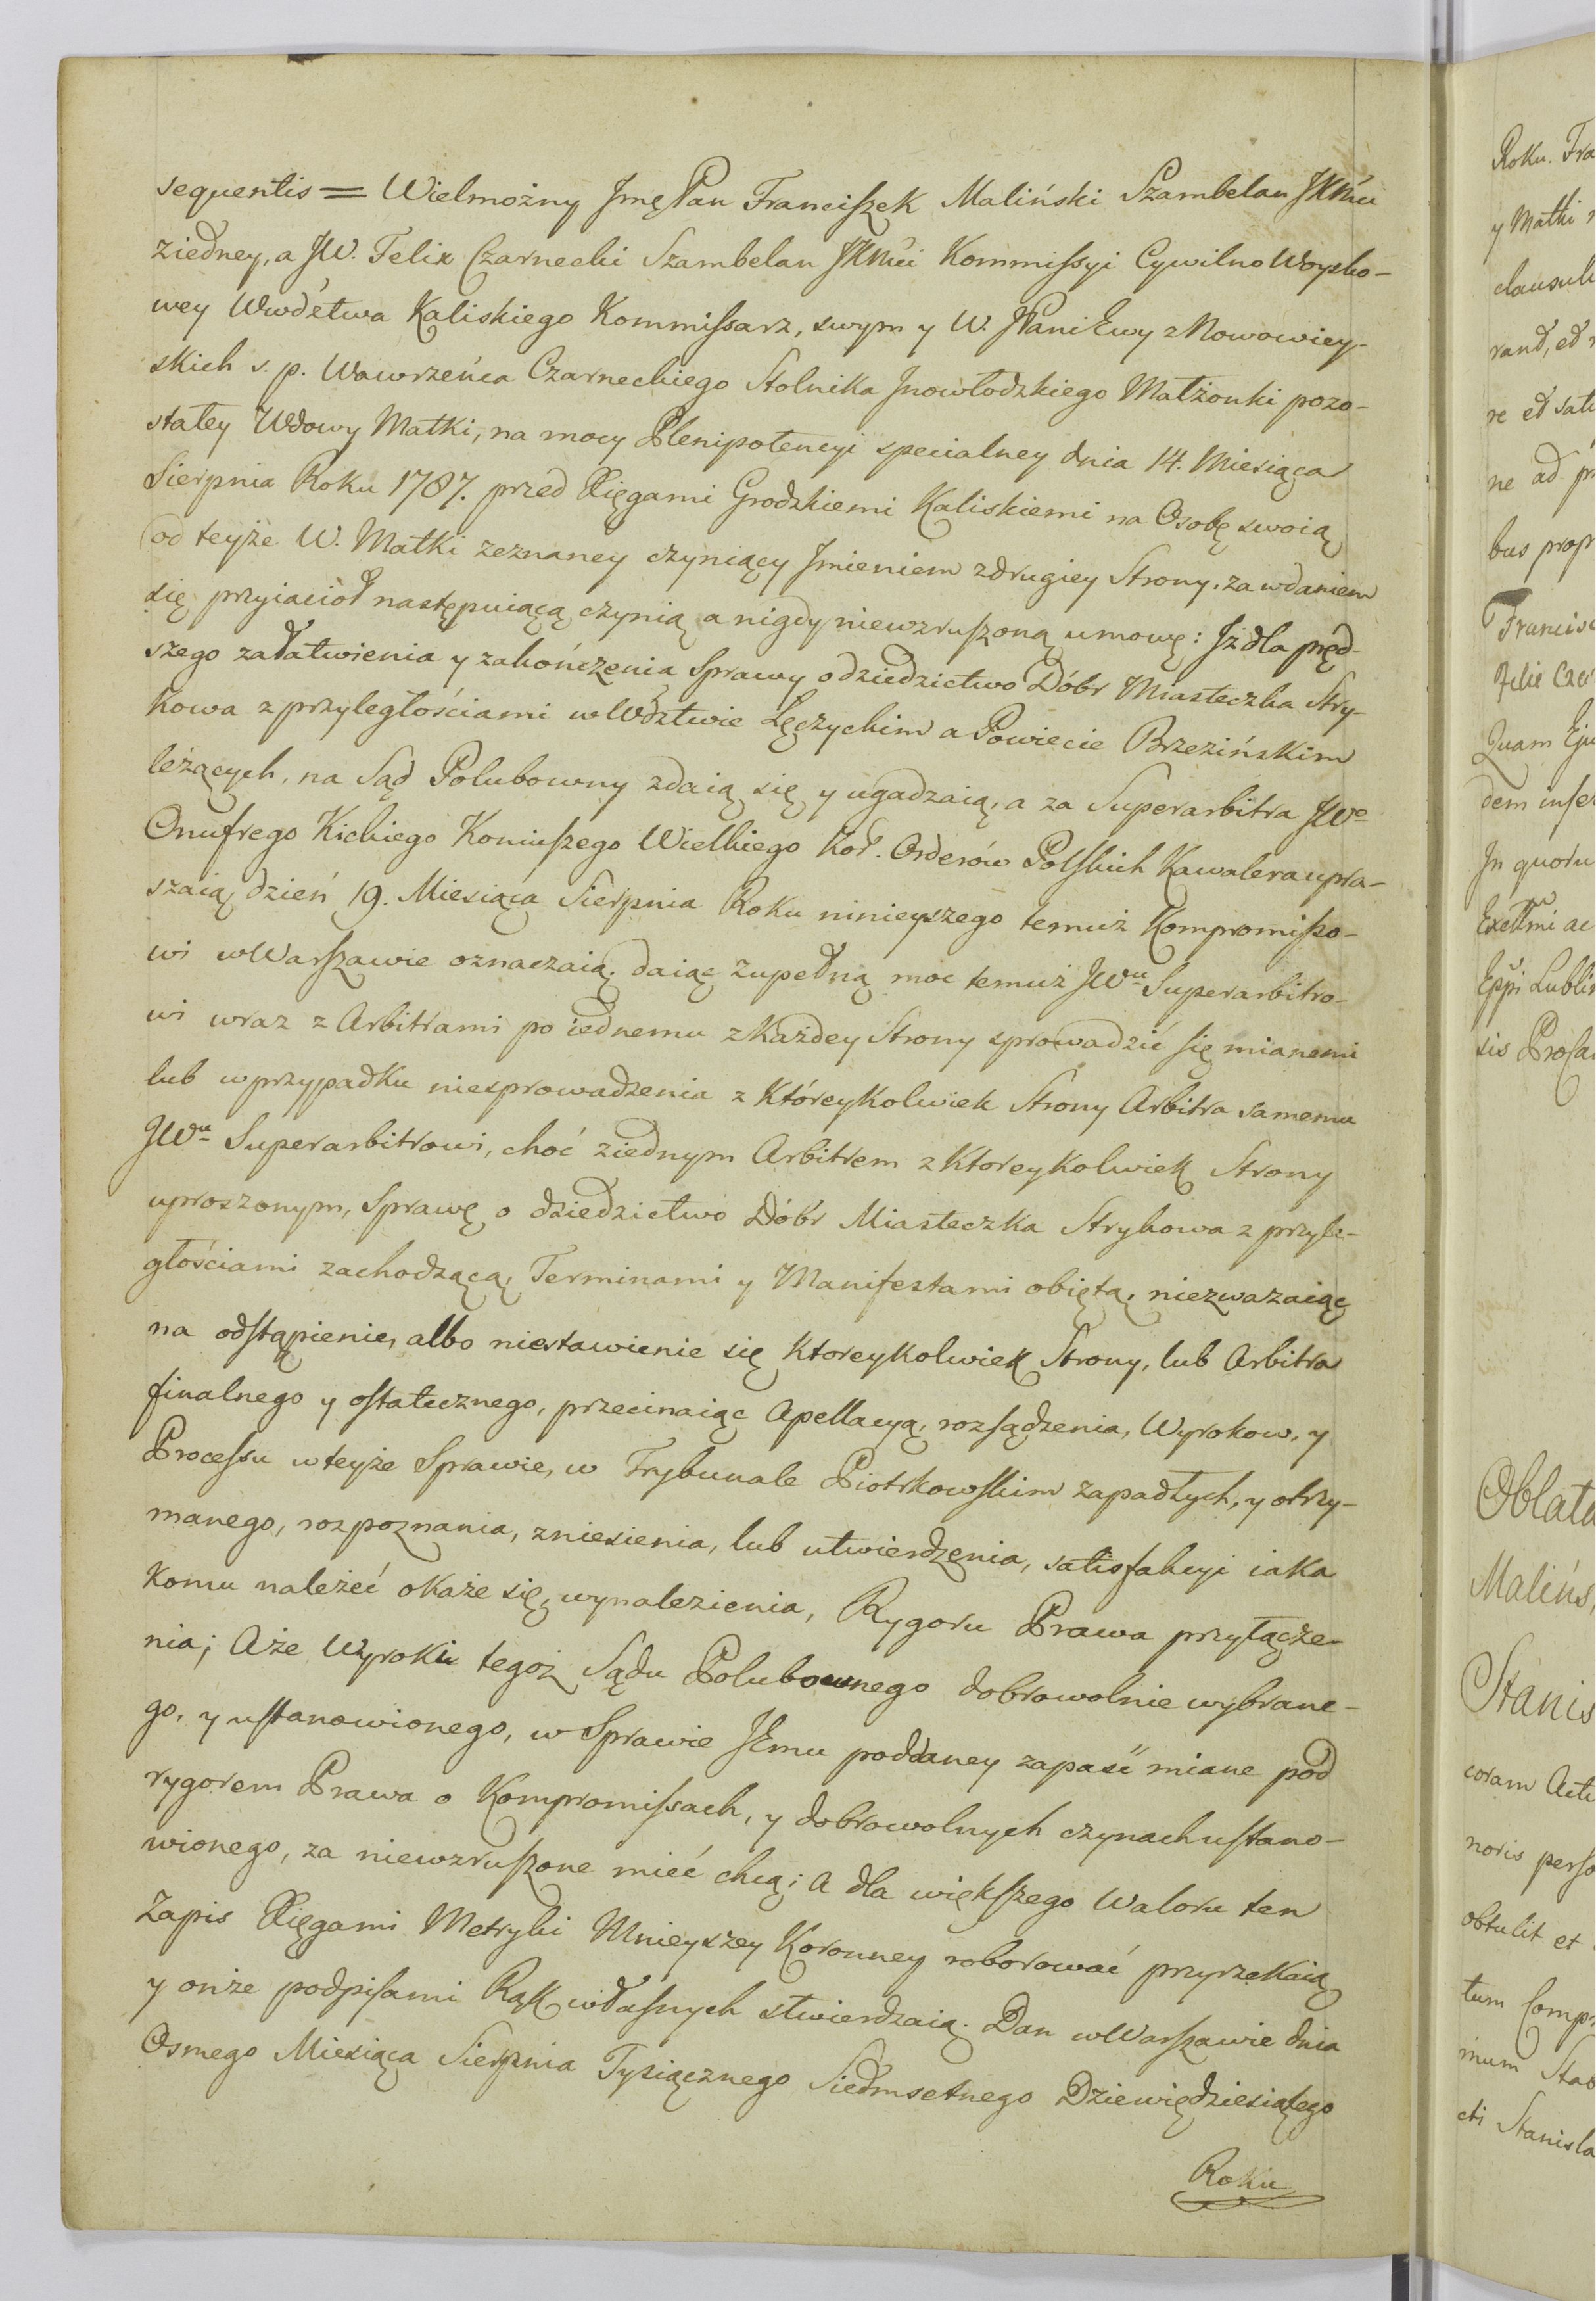 sequentis = Wielmożny Jmę Pan Franciszek Maliński Szambelan JKMci
ziedney, a JW. Felix Czarnecki Szambelan JKMci Kommissyi Cywilno Woysko-
wey Wwdztwa Kaliskiego Kommissarz, swym y W. JPani Ewy z Nowowiey-
skich s. p. Wawrzeńca Czarneckiego Stolnika Jnowłodzkiego Małżonki pozo-
stałey Wdowy Matki, na mocy Plenipotencyi specialney dnia 14. Miesiąca
Sierpnia Roku 1787. przed Xięgami Grodzkiemi Kaliskiemi na Osobę swoią
od teyże W. Matki zeznaney czyniący Jmieniem zdrugiey Strony, za wdaniem
się przyiaciół następuiącą czynią a nigdy niewzruszoną umowę: Jż dla pręd-
szego załatwienia y zakończenia Sprawy o dziedzictwo Dóbr Miasteczka Stry-
kowa z przyległościami w Wdztwie Łęczyckim a Powiecie Brzezińskim
leżących, na Sąd Polubowny zdaią się y ugadzaią, a za Superarbitra JWo
Onufrego Kickiego Koniuszego Wielkiego Kor. Orderów Polskich Kawalera upra-
szaią, dzień 19. Miesiąca Sierpnia Roku ninieyszego temuż Kompromisso-
wi w Warszawie oznaczaią, daiąc zupełną moc temuż JWu Superarbitro-
wi wraz z Arbitrami po iednemu z Każdey Strony sprowadzić się mianemi
lub w przypadku niesprowadzenia z Któreykolwiek Strony Arbitra samemu
JWu Superarbitrowi, choć ziednym Arbitrem z Ktoreykolwiek Strony
uproszonym, Sprawę o dziedzictwo Dóbr Miasteczka Strykowa z przyle-
głościami zachodzącą, Terminami y Manifestami obiętą, niezważaiąc
na odstąpienie, albo niestawienie się Ktoreykolwiek Strony, lub Arbitra
finalnego y ostatecznego, przecinaiąc Apellacyą, rozsądzenia, Wyrokow, y
Processu w teyże Sprawie, w Trybunale Piotrkowskim zapadłych, y otrzy-
manego, rozpoznania, zniesienia, lub utwierdzenia, satisfakcyi iaka
Komu należeć okaże się, wynalezienia, Rygoru Prawa przyłącze-
nia; Aże Wyroki tegoż Sądu Polubownego dobrowolnie wybrane-
go, y ustanowionego, w Sprawie Jemu poddaney zapaść miane pod
rygorem Prawa o Kompromissach, y dobrowolnych czynach ustano-
wionego, za niewzruszone mieć chcą; A dla większego Waloru ten
Zapis Xięgami Metryki Mnieyszey Koronney roborować przyrzekaią
y onże podpisami Rąk własnych stwierdzaią. Dan w Warszawie dnia
Osmego Miesiąca Sierpnia Tysiącznego Siedmsetnego Dziewiędziesiątego
Roku
Roku. Fra
y Matki
clausul
rand, ed
re ed sat
ne ad p
bus prop
Francis
Felix Cza
Quam Ej
dem inse
Jn quoru
Excellmi ac
Eppi Lubli
sis
Oblata
Malińs
Stanis
coram Act
noris perso
obtulit et
tum Comp
mum Sta
cti Stanisla